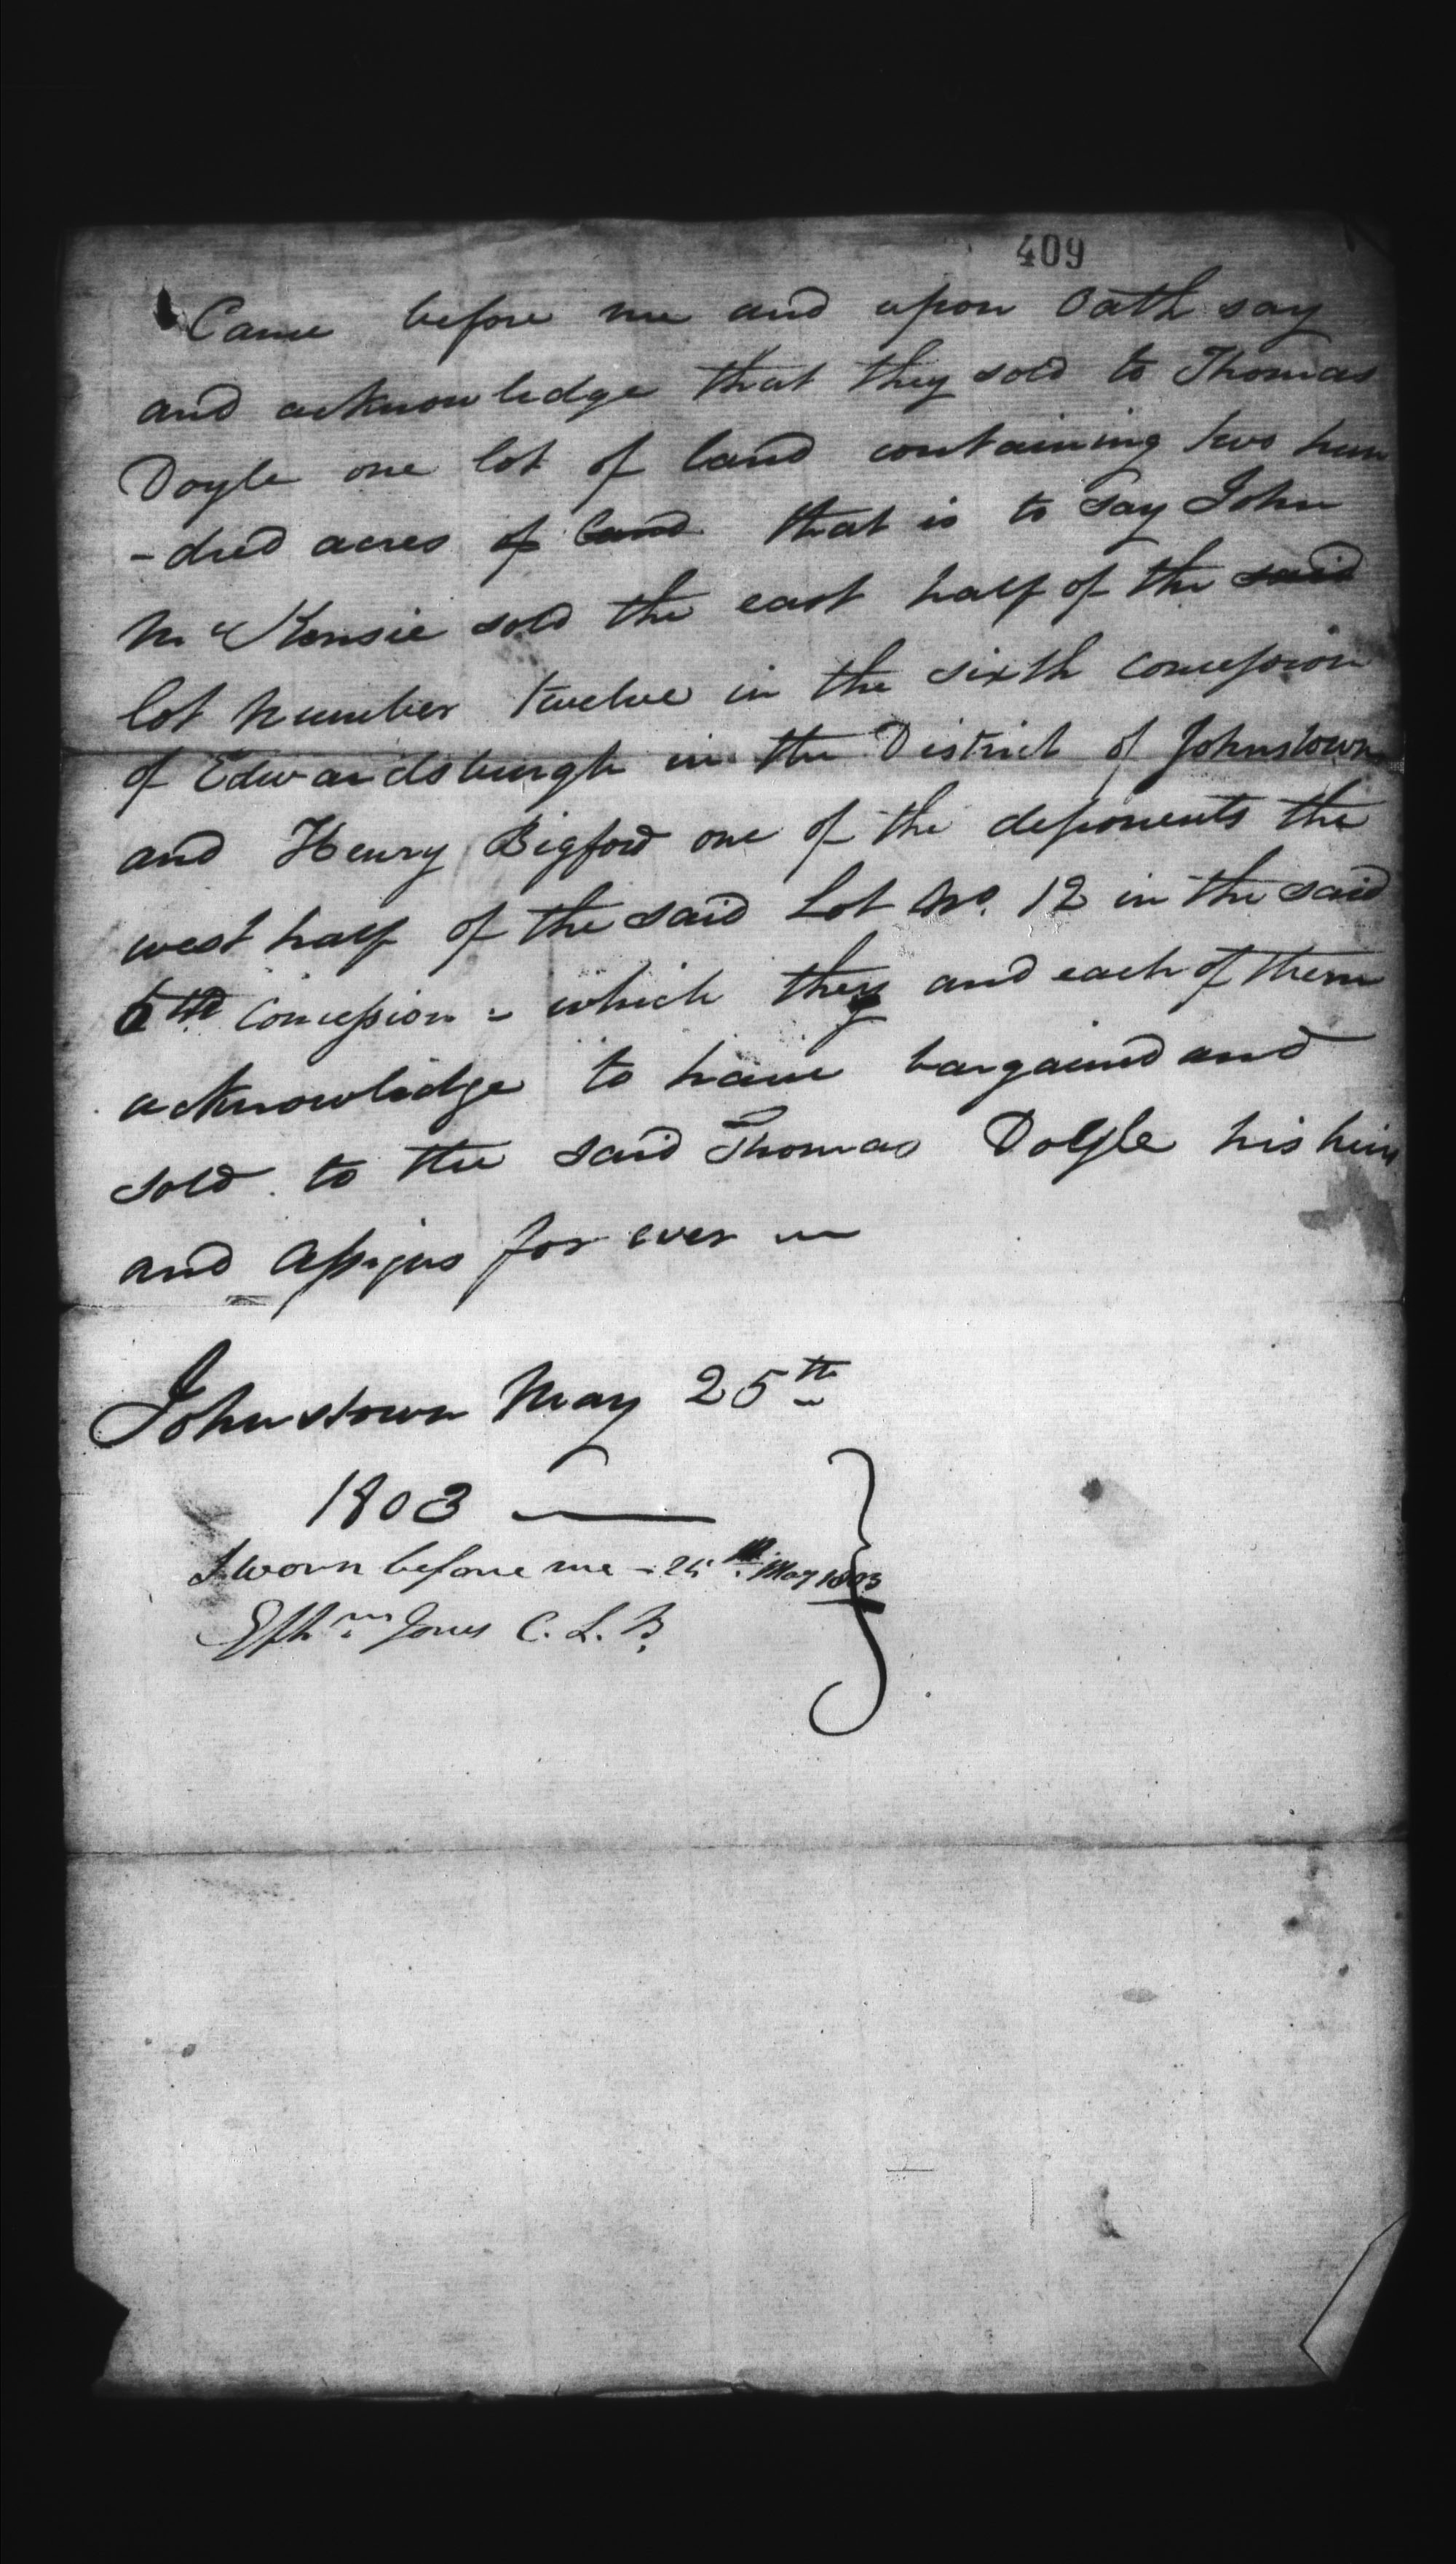 409
Came before me and upon Oath say
and acknowledge that they sold to Thomas
Doyle one lot of land containing two hun
-dred acres of land that is to say John
McKensie sold the east half of the said
lot number twelve in the sixth concession
of Edwardsburgh in the District of Johnstown
and Henry Bigford one of the deponents the
west half of the said Lot No. 12 in the said
6th Concession - which they and each of them
acknowledge to have bargained and
sold to the said Thomas Doyle his heirs
and Assigns for ever
Johnstown May 25th
1803
Sworn before me - 25th May 1803
Ephm Jones C. L. B.